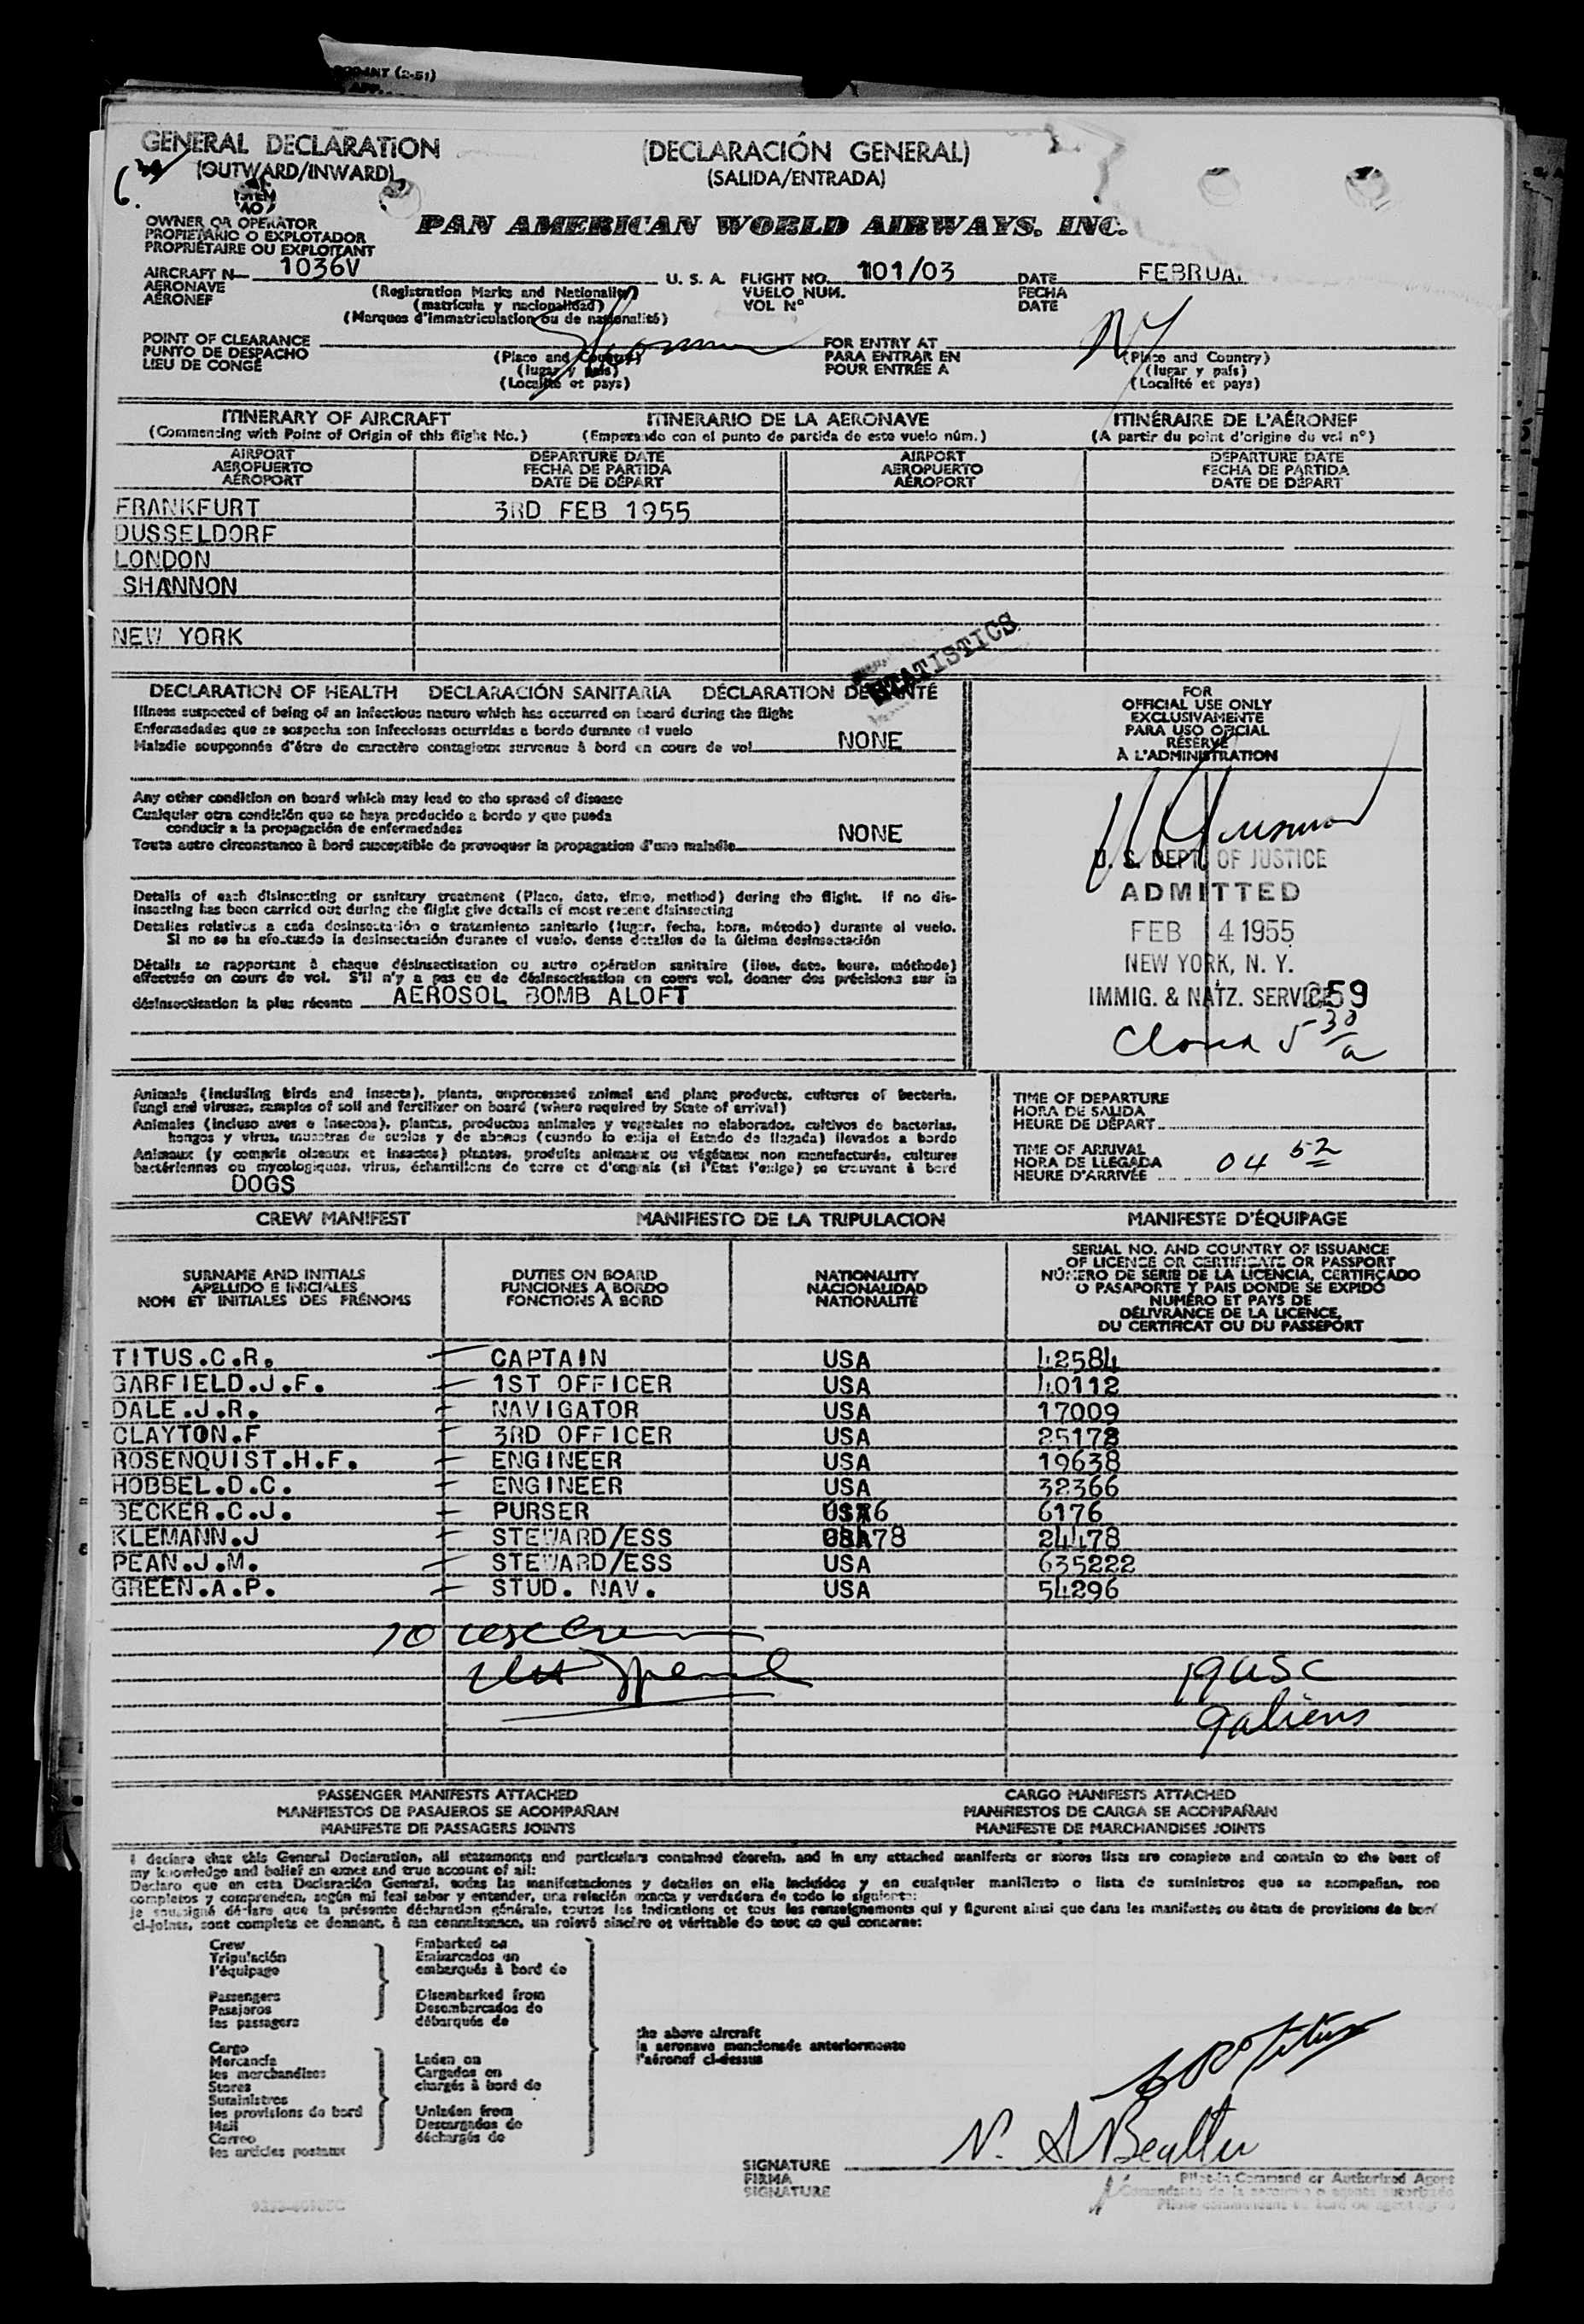 GENERAL DECLARATION
(OUTWARD/INWARD)
(DECLARACIÓN GENERAL)
(SALIDA/ENTRADA)
OWNER OR OPERATOR
PROPIETARIO O EXPLOTADOR
PROPRIÉTAIRE OU EXPLOITANT
PAN AMERICAN WORLD AIRWAYS, INC.
AIRCRAFT N 1036V U. S. A. FLIGHT NO. 101/03 DATE FEBRUA
AERONAVE (Registration Marks and Nationality) VUELO NUM. FECHA
AÉRONEF (matrícula y nacionalidad) VOL N° DATE
(Marques d'immatriculation ou de nationalité)
POINT OF CLEARANCE Shannon FOR ENTRY AT NY
PUNTO DE DESPACHO (Place and Country) PARA ENTRAR EN (Place and Country)
LIEU DE CONGÉ (lugar y país) POUR ENTRÉE A (lugar y país)
(Localité et pays) (Localité et pays)
ITINERARY OF AIRCRAFT ITINERARIO DE LA AERONAVE ITINÉRAIRE DE L'AÉRONEF
(Commencing with Point of Origin of this flight No.) (Empezando con el punto de partida de este vuelo núm.) (A partir du point d'origine du vol n°)
AIRPORT DEPARTURE DATE AIRPORT DEPARTURE DATE
AEROPUERTO FECHA DE PARTIDA AEROPUERTO FECHA DE PARTIDA
AÉROPORT DATE DE DÉPART AÉROPORT DATE DE DÉPART
FRANKFURT 3RD FEB 1955
DUSSELDORF
LONDON
SHANNON
NEW YORK
STATISTICS
DECLARATION OF HEALTH DECLARACIÓN SANITARIA DÉCLARATION DE SANTÉ
Illness suspected of being of an infectious nature which has occurred on board during the flight
Enfermedades que se sospecha son infecciosas ocurridas a bordo durante el vuelo
Maladie soupçonnée d'être de caractère contagieux survenue à bord en cours de vol NONE
Any other condition on board which may lead to the spread of disease
Cualquier otra condición que se haya producido a bordo y que pueda
conducir a la propagación de enfermedades
Toute autre circonstance à bord susceptible de provoquer la propagation d'une maladie NONE
Details of each disinsecting or sanitary treatment (Place, date, time, method) during the flight. If no dis-
insecting has been carried out during the flight give details of most recent disinsecting
Detalles relativos a cada desinsectación o tratamiento sanitario (lugar, fecha, hora, método) durante el vuelo.
Si no se ha efectuado la desinsectación durante el vuelo, dense detalles de la última desinsectación
Détails se rapportant à chaque désinsectisation ou autre opération sanitaire (lieu, date, heure, méthode)
effectuée en cours de vol. S'il n'y a pas eu de désinsectisation en cours vol, donner des précisions sur la
désinsectisation la plus récente AEROSOL BOMB ALOFT
FOR
OFFICIAL USE ONLY
EXCLUSIVAMENTE
PARA USO OFICIAL
RESERVÉ
À L'ADMINISTRATION
U. S. DEPT. OF JUSTICE
ADMITTED
FEB 4 1955
NEW YORK, N. Y.
IMMIG. & NATZ. SERVICE 59
5 30/a
Animals (including birds and insects), plants, unprocessed animal and plant products, cultures of bacteria,
fungi and viruses, samples of soil and fertilizer on board (where required by State of arrival)
Animales (incluso aves e insectos), plantas, productos animales y vegetales no elaborados, cultivos de bacterias,
hongos y virus, muestras de suelos y de abonos (cuando lo exija el Estado de llegada) llevados a bordo
Animaux (y compris oiseaux et insectes) plantes, produits animaux ou végétaux non manufacturés, cultures
bactériennes ou mycologiques, virus, échantillons de terre et d'engrais (si l'État l'exige) se trouvant à bord
DOGS
TIME OF DEPARTURE
HORA DE SALIDA
HEURE DE DÉPART
TIME OF ARRIVAL
HORA DE LLEGADA 04 52
HEURE D'ARRIVÉE
CREW MANIFEST MANIFIESTO DE LA TRIPULACION MANIFESTE D'ÉQUIPAGE
SURNAME AND INITIALS
APELLIDO E INICIALES
NOM ET INITIALES DES PRÉNOMS
DUTIES ON BOARD
FUNCIONES A BORDO
FONCTIONS À BORD
NATIONALITY
NACIONALIDAD
NATIONALITÉ
SERIAL NO. AND COUNTRY OF ISSUANCE
OF LICENCE OR CERTIFICATE OR PASSPORT
NÚMERO DE SERIE DE LA LICENCIA, CERTIFICADO
O PASAPORTE Y PAIS DONDE SE EXPIDO
NUMÉRO ET PAYS DE
DÉLIVRANCE DE LA LICENCE,
DU CERTIFICAT OU DU PASSEPORT
TITUS.C.R. CAPTAIN USA 42584
GARFIELD.J.F. 1ST OFFICER USA 40112
DALE.J.R. NAVIGATOR USA 17009
CLAYTON.F 3RD OFFICER USA 25178
ROSENQUIST.H.F. ENGINEER USA 19638
HOBBEL.D.C. ENGINEER USA 32366
BECKER.C.J. PURSER USA 6176
KLEMANN.J STEWARD/ESS USA 24478
PEAN.J.M. STEWARD/ESS USA 635222
GREEN.A.P. STUD. NAV. USA 54296
10 usc Crew
19 USC
9 aliens
PASSENGER MANIFESTS ATTACHED CARGO MANIFESTS ATTACHED
MANIFIESTOS DE PASAJEROS SE ACOMPAÑAN MANIFIESTOS DE CARGA SE ACOMPAÑAN
MANIFESTE DE PASSAGERS JOINTS MANIFESTE DE MARCHANDISES JOINTS
I declare that this General Declaration, all statements and particulars contained therein, and in any attached manifests or stores lists are complete and contain to the best of
my knowledge and belief an exact and true account of all:
Declaro que en esta Declaración General, todas las manifestaciones y detalles en ella incluídos y en cualquier manifiesto o lista de suministros que se acompañan, son
completos y comprenden, según mi leal saber y entender, una relación exacta y verdadera de todo lo siguiente:
je soussigné déclare que la présente déclaration générale, toutes les indications et tous les renseignements qui y figurent ainsi que dans les manifestes ou états de provisions de bord
ci-joints, sont complets et donnent, à ma connaissance, un relevé sincère et véritable de tout ce qui concerne:
Crew Embarked on
Tripulación Embarcados en
l'équipage embarqués à bord de
Passengers Disembarked from
Pasajeros Desembarcados de
les passagers débarqués de
the above aircraft
la aeronave mencionada anteriormente
l'aéronef ci-dessus
Cargo
Mercancía Laden on
les marchandises Cargados en
Stores chargés à bord de
Suministros
les provisions de bord Unladen from
Mail Descargados de
Correo déchargés de
les articles postaux
SIGNATURE
FIRMA
SIGNATURE
Pilot-in-Command or Authorized Agent